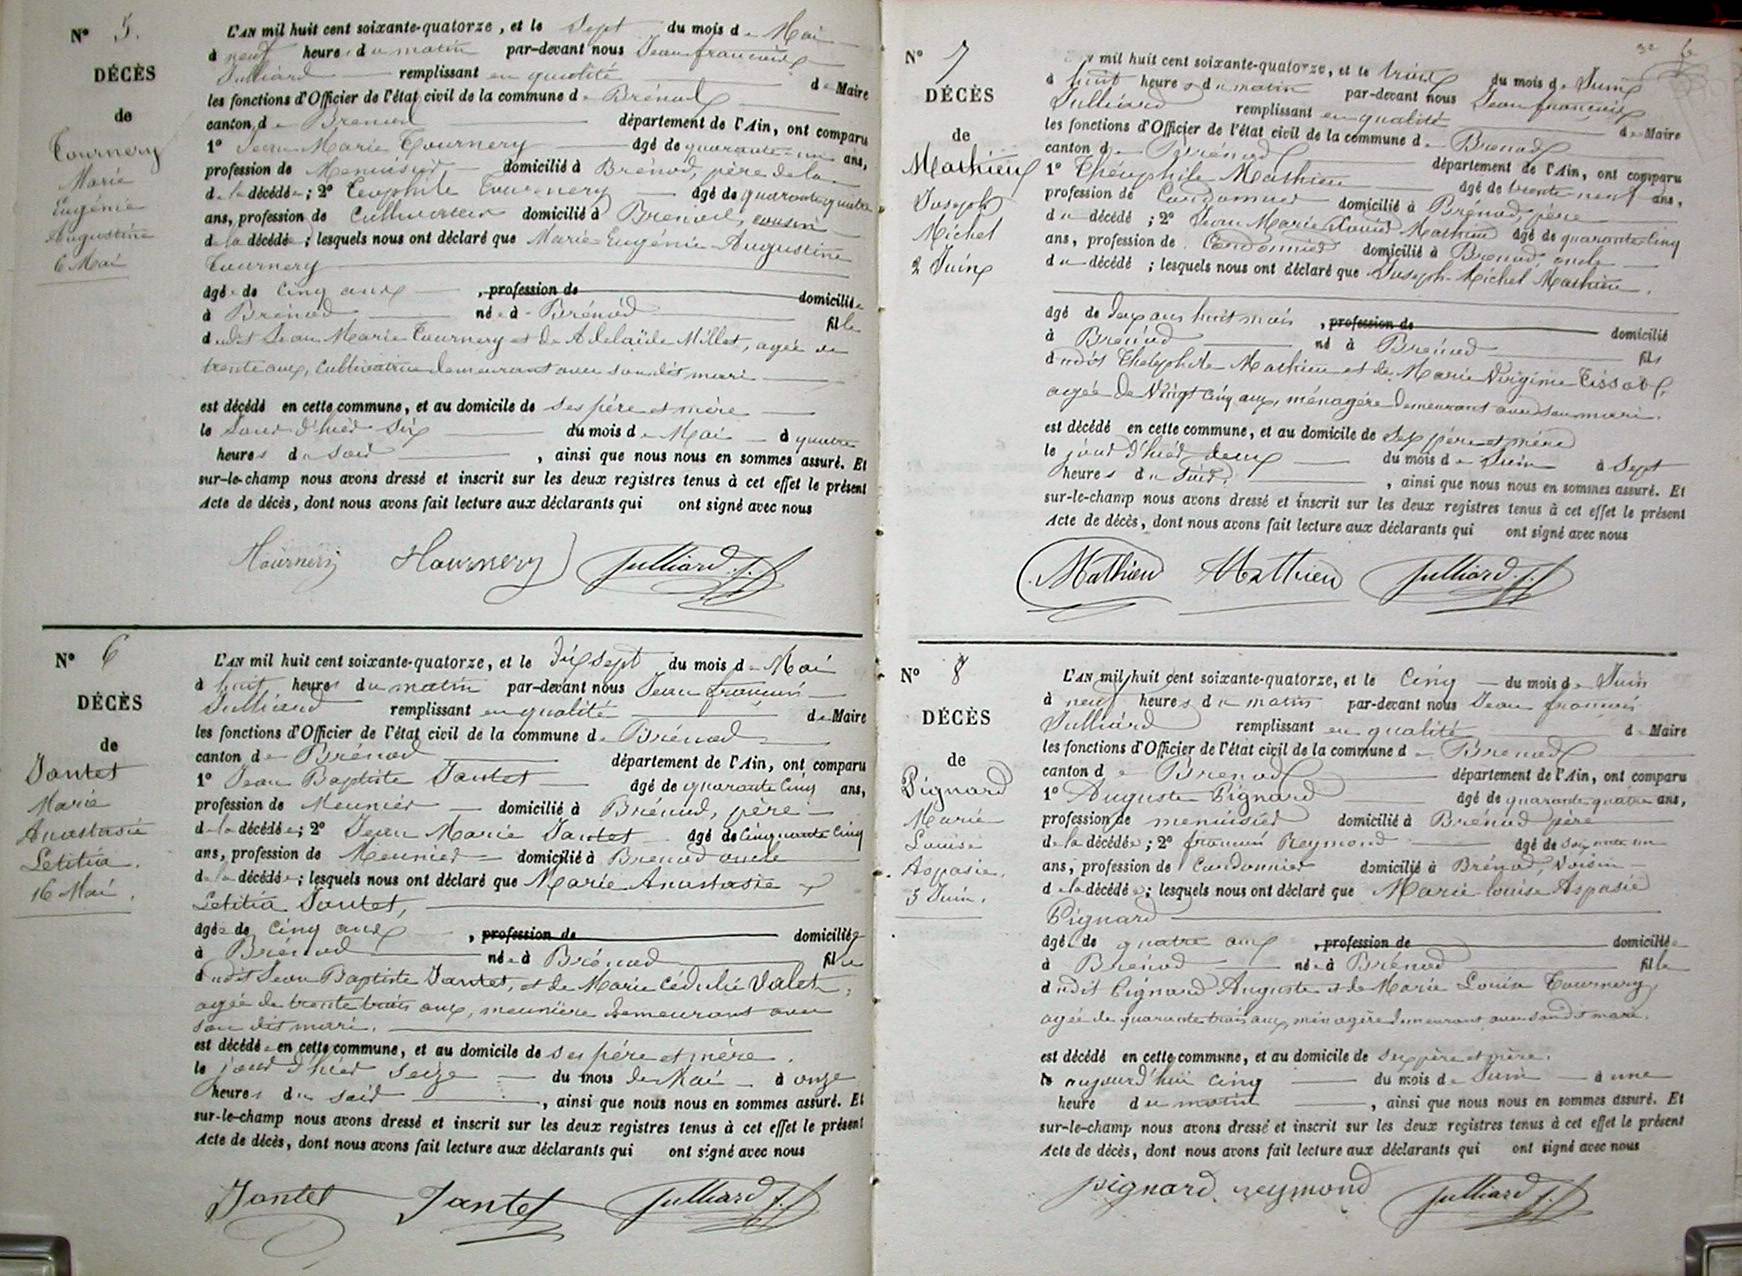 N° 5.
DÉCÈS
de
Tournery
Marie
Eugénie
Augustine
6 Mai
L'AN mil huit cent soixante-quatorze, et le sept du mois de Mai
à neuf heures du matin par-devant nous Jean françois
Julliard remplissant en qualité de Maire
les fonctions d'Officier de l'état civil de la commune de Brénod
canton de Brenod département de l'Ain, ont comparu
1° Jean Marie Tournery âgé de quarante-un ans,
profession de Menuisier domicilié à Brénod, père de la
de la décédée; 2° Téophile Tournery âgé de quarante quatre
ans, profession de Cultivateur domicilié à Brénod, cousin
de la décédée; lesquels nous ont déclaré que Marie Eugénie Augustine
Tournery
âgée de cinq ans, profession de domiciliée
à Brénod née à Brénod fille
dudit Jean Marie Tournery et de Adelaïde Millet, agée de
trente ans, cultivatrice demeurant avec son dit mari
est décédé en cette commune, et au domicile de ses père et mère
le jour d'hier six du mois de Mai à quatre
heures du soir, ainsi que nous nous en sommes assuré. Et
sur-le-champ nous avons dressé et inscrit sur les deux registres tenus à cet effet le présent
Acte de décès, dont nous avons fait lecture aux déclarants qui ont signé avec nous
Tournery Tournery Julliard J. f.
N° 6
DÉCÈS
de
Jantet
Marie
Anastasie
Letitia.
16 Mai.
L'AN mil huit cent soixante-quatorze, et le dix sept du mois de Mai
à huit heures du matin par-devant nous Jean francois
Julliard remplissant en qualité de Maire
les fonctions d'Officier de l'état civil de la commune de Brénod
canton de Brénod département de l'Ain, ont comparu
1° Jean Baptiste Jantet âgé de quarante cinq ans,
profession de Meunier domicilié à Brénod, père
de la décédée; 2° Jean Marie Jantet âgé de cinquante cinq
ans, profession de Meunier domicilié à Brénod oncle
de la décédée; lesquels nous ont déclaré que Marie Anastasie
Letitia Jantet,
âgée de cinq ans, profession de domiciliée
à Brénod née à Brénod fille
dudit Jean Baptiste Jantet, et de Marie Cédulie Valet,
agée de trente trois ans, meunière demeurant avec
son dit mari.
est décédée en cette commune, et au domicile de ses père et mère.
le jour d'hier seize du mois de Mai à onze
heures du soir, ainsi que nous nous en sommes assuré. Et
sur-le-champ nous avons dressé et inscrit sur les deux registres tenus à cet effet le présent
Acte de décès, dont nous avons fait lecture aux déclarants qui ont signé avec nous
Jantet Jantet Julliard J. f.
N° 7
DÉCÈS
de
Mathieu
Joseph
Michel
2 Juin
mil huit cent soixante-quatorze, et le trois du mois de Juin
à huit heures du matin par-devant nous Jean françois
Julliard remplissant en qualité de Maire
les fonctions d'Officier de l'état civil de la commune de Brenod
canton de Brénod département de l'Ain, ont comparu
1° Théophile Mathieu âgé de trente neuf ans,
profession de Cordonnier domicilié à Brénod, père
du décédé; 2° Jean Marie Mathieu âgé de quarante cinq
ans, profession de Cordonnier domicilié à Brenod oncle
du décédé; lesquels nous ont déclaré que Joseph Michel Mathieu.
âgé de deux ans huit mois, profession de domicilié
à Brénod né à Brénod fils
dudit Théophile Mathieu et de Marie Virginie Tissot,
agée de Vingt cinq ans, ménagère demeurant avec son mari.
est décédé en cette commune, et au domicile de ses père et mère
le jour d'hier deux du mois de Juin à sept
heures du soir, ainsi que nous nous en sommes assuré. Et
sur-le-champ nous avons dressé et inscrit sur les deux registres tenus à cet effet le présent
Acte de décès, dont nous avons fait lecture aux déclarants qui ont signé avec nous
Mathieu Mathieu Julliard J. f.
N° 8
DÉCÈS
de
Pignard
Marie
Louise
Aspasie.
5 Juin.
L'AN mil huit cent soixante-quatorze, et le cinq du mois de Juin
à neuf heures du matin par-devant nous Jean francois
Julliard remplissant en qualité de Maire
les fonctions d'Officier de l'état civil de la commune de Brenod
canton de Brenod département de l'Ain, ont comparu
1° Auguste Pignard âgé de quarante quatre ans,
profession de menuisier domicilié à Brénod père
de la décédée; 2° francois Reymond âgé de soixante un
ans, profession de Cordonnier domicilié à Brénod, Voisin
de la décédée; lesquels nous ont déclaré que Marie louise Aspasie
Pignard
âgée de quatre ans, profession de domiciliée
à Brénod née à Brénod fille
dudit Pignard Auguste et de Marie Louise Tournery,
agée de quarante trois ans, ménagère demeurant avec son dit mari.
est décédé en cette commune, et au domicile de ses père et mère.
le aujourd'hui cinq du mois de Juin à une
heure du matin, ainsi que nous nous en sommes assuré. Et
sur-le-champ nous avons dressé et inscrit sur les deux registres tenus à cet effet le présent
Acte de décès, dont nous avons fait lecture aux déclarants qui ont signé avec nous
pignard reymond Julliard J. f.